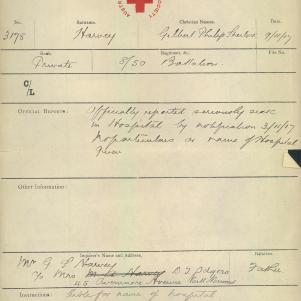 AUSTR
SOCIETY
No. Surname. Christian Names. Date.
3178 Harvey Gilbert Philip 9/11/17
Rank. Regiment, &c. File No.
Private 5/50 Battalion.
C/L
OFFICIAL REPORTS: Officially reported seriously sick
in Hospital by notification 3/11/17
No particulars or name of Hospital
given
Other Information:
Inquirer's Name and Address, Relation.
Mr G. P. Harvey
c/o Mrs D. J. Father
45 Avenue
Instructions: Cable for name of hospital